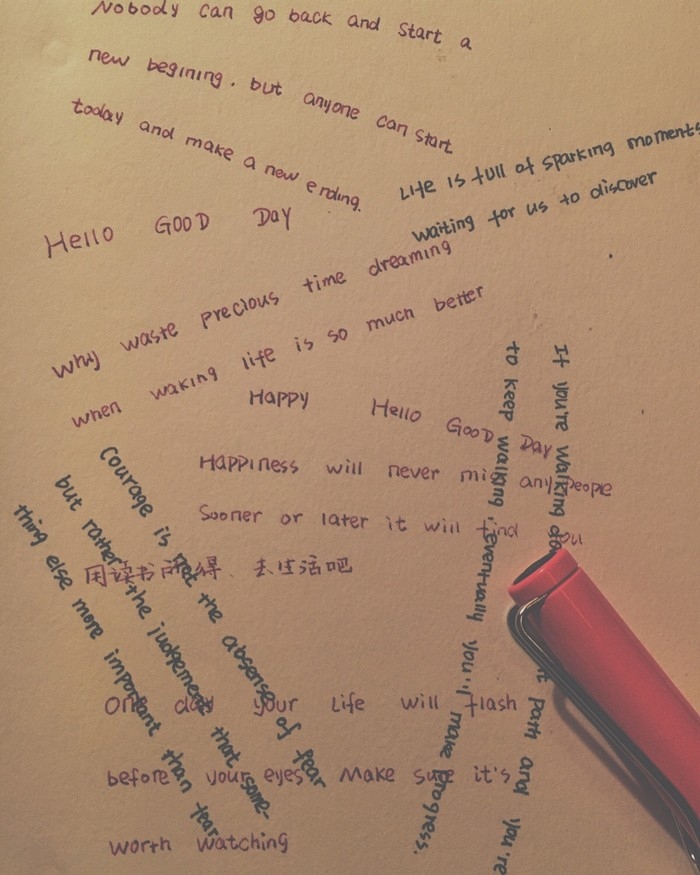 Nobody can go back and start a
new begining. but anyone can start
today and make a new ending.
Life is full of sparking moments
waiting for us to discover
Hello GOOD DAY
why waste precious time dreaming
when waking life is so much better
Happy Hello GOOD DAY
Happiness will never miss any people
Sooner or later it will find you
用读书所得、去生活吧
One day your Life will flash
before your eyes Make sure it's
worth watching
Courage is not the absense of fear
but rather the judgement that some-
thing else more important than fear.
If you're walking path and you're
to keep walking, eventually you'll make progress.